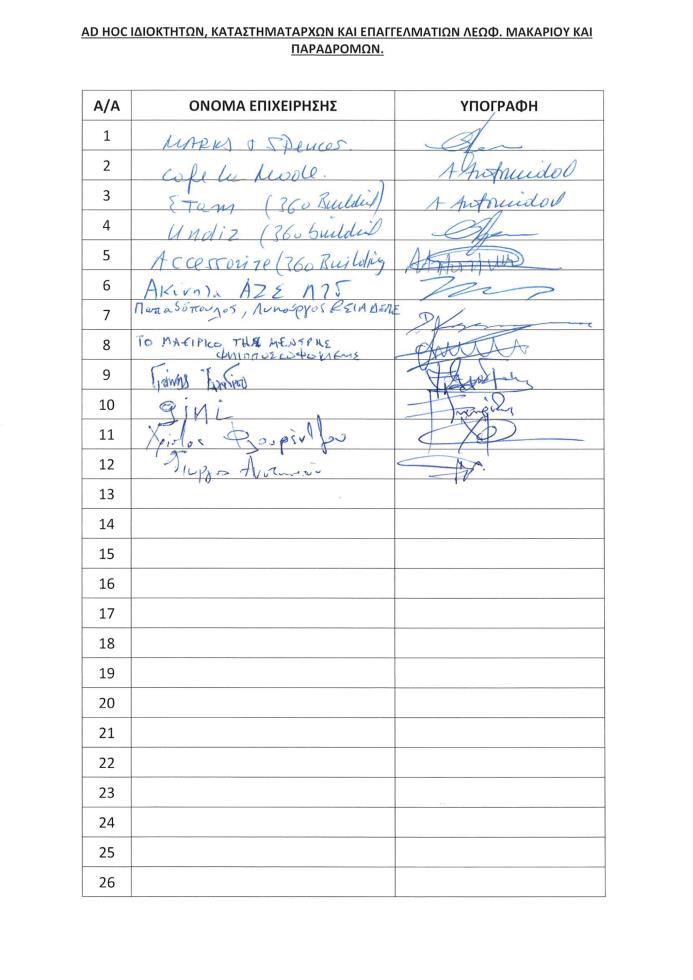 AD HOC ΙΔΙΟΚΤΗΤΩΝ, ΚΑΤΑΣΤΗΜΑΤΑΡΧΩΝ ΚΑΙ ΕΠΑΓΓΕΛΜΑΤΙΩΝ ΛΕΩΦ. ΜΑΚΑΡΙΟΥ ΚΑΙ
ΠΑΡΑΔΡΟΜΩΝ.
Α/Α ΟΝΟΜΑ ΕΠΙΧΕΙΡΗΣΗΣ ΥΠΟΓΡΑΦΗ
1 MARKS & Spencer.
2 Cafe La Mode. A Antoniadou
3 Etam (360 Building) A Antoniadou
4 Undiz (360 building
5 Accessorize (360 Building
6 Ακίνητα ΑΖΣ
7 Παπαδόπουλος, Λυκούργος &ΣΙΑ ΔΕΠΕ
8 ΤΟ ΜΑΓΙΡΙΚΟ ΤΗΣ
9 Γιάννης
10 gini
11 Χρίστος Φλουρέντζου
12 Γιώργος Αντωνίου
13
14
15
16
17
18
19
20
21
22
23
24
25
26